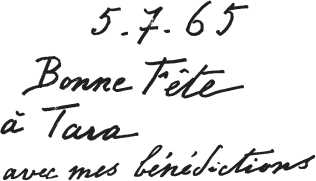 5.7.65
Bonne Fête
à Tara
avec mes bénédictions